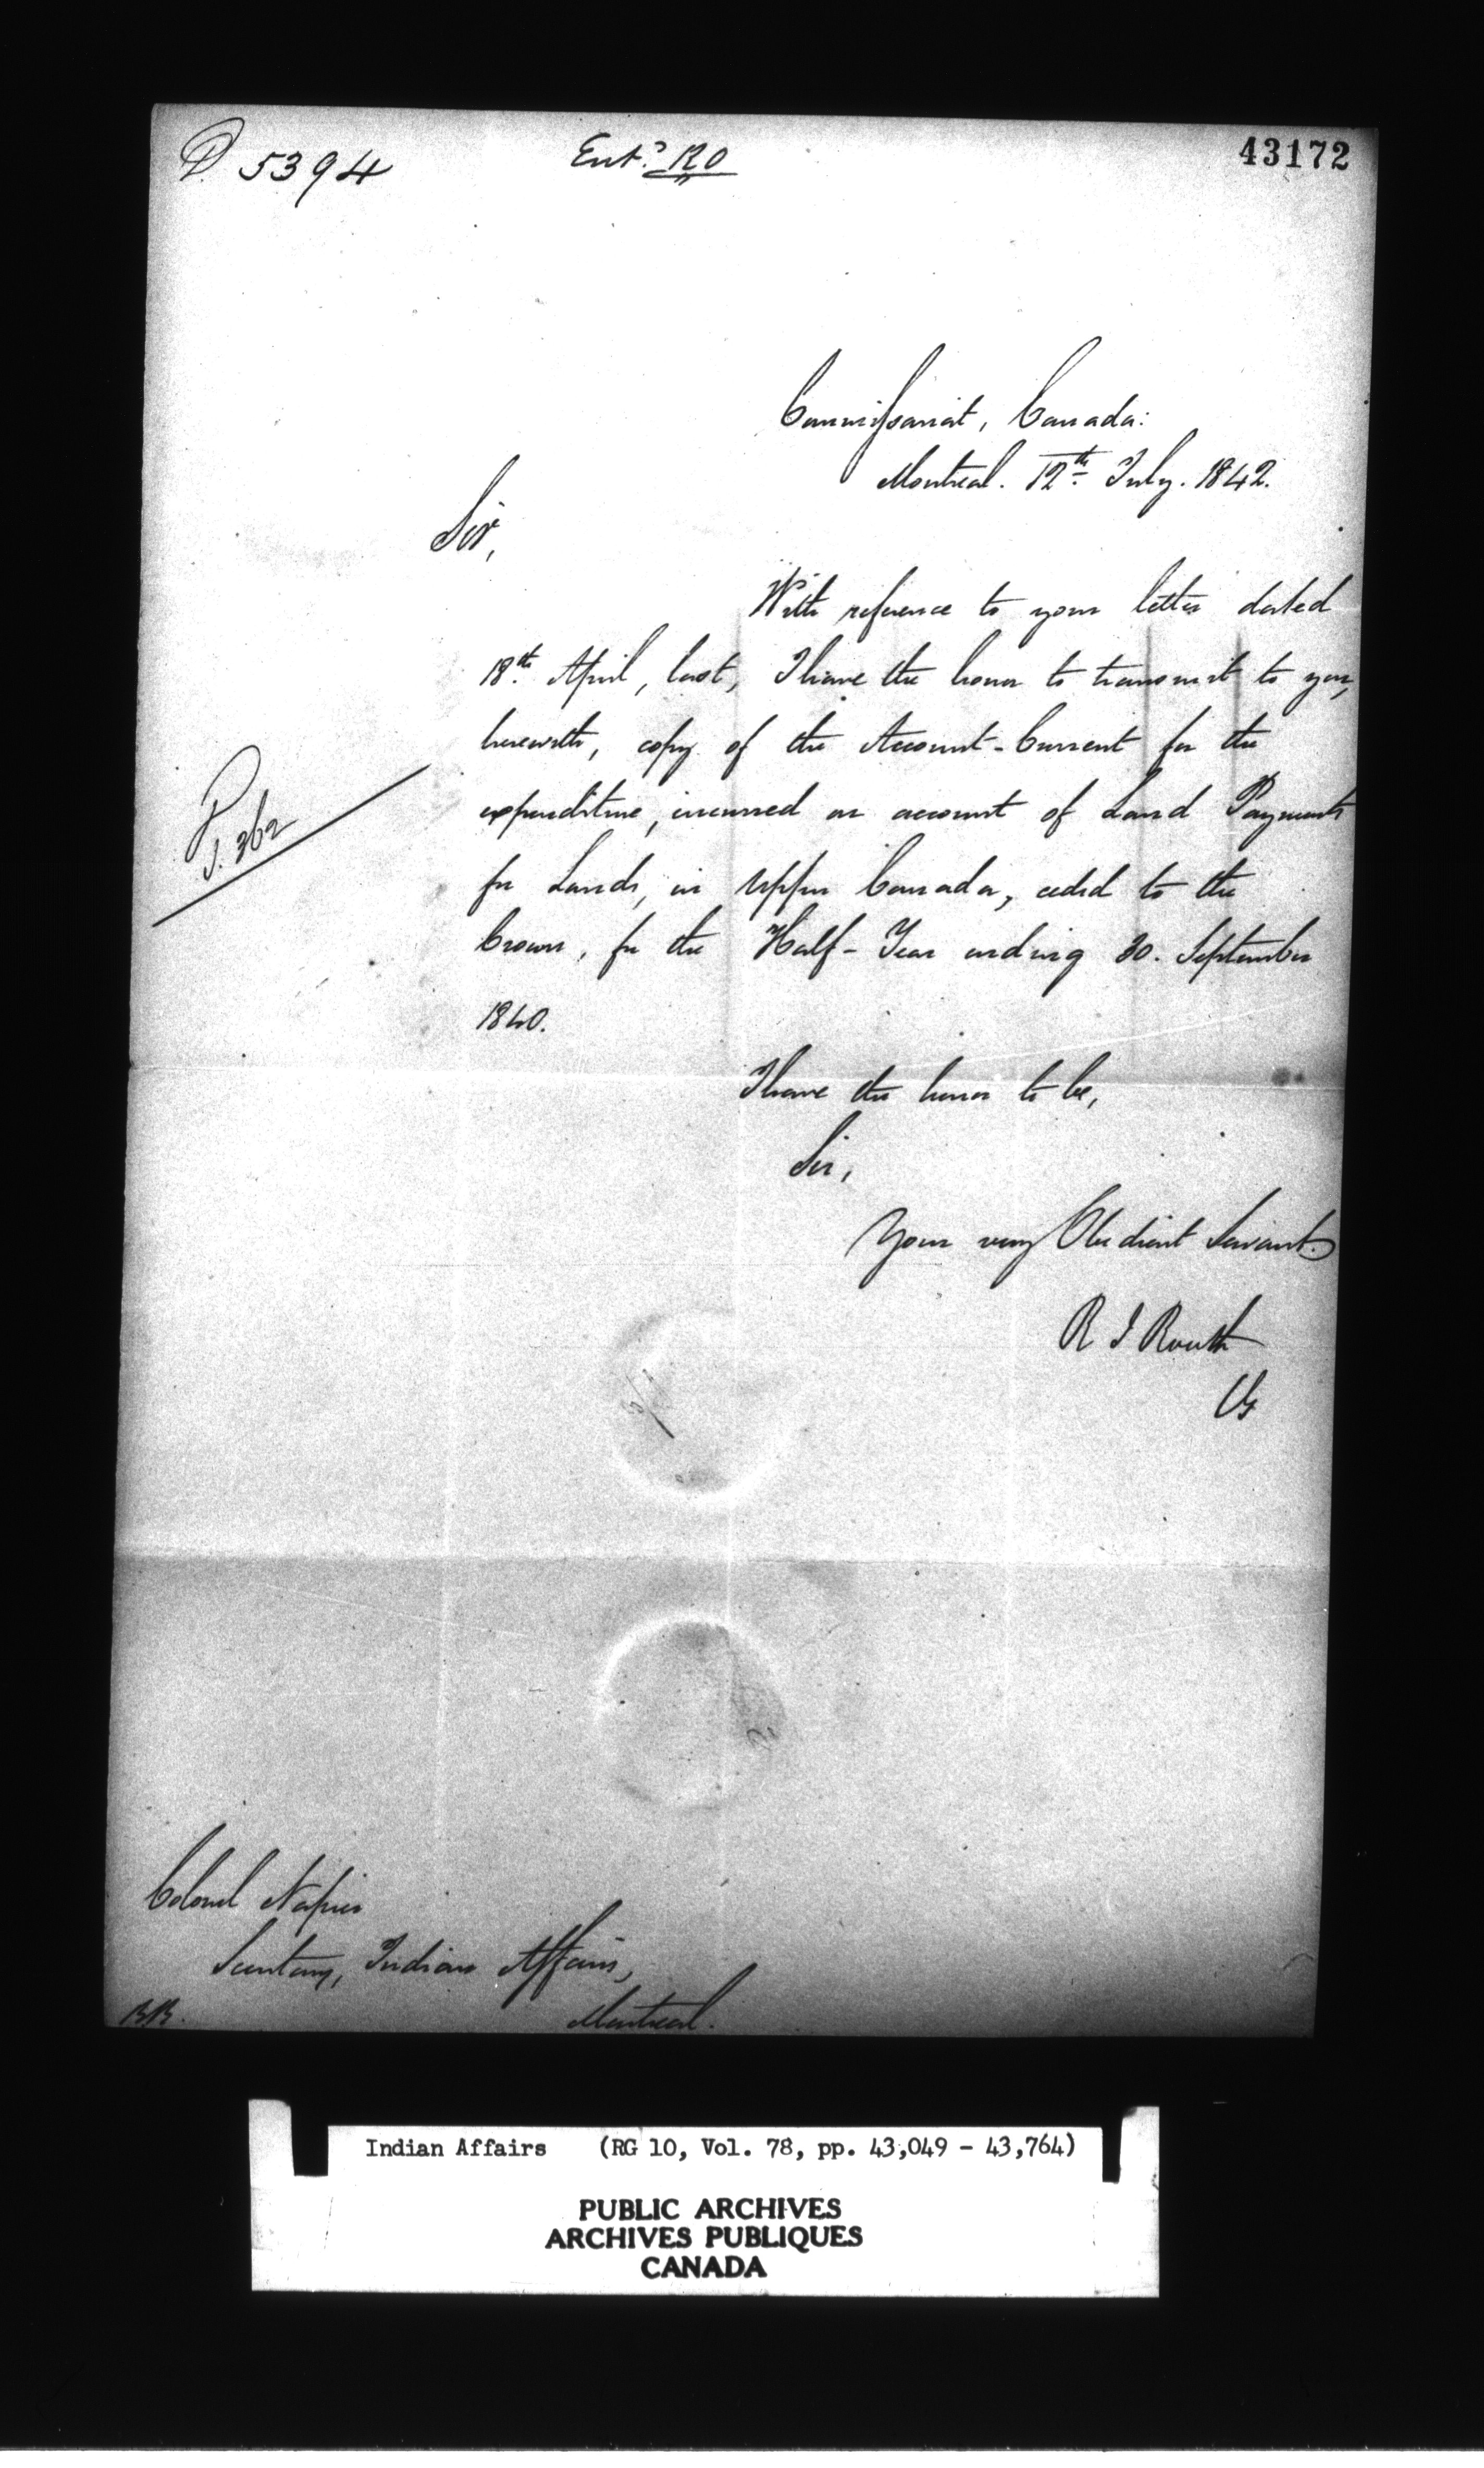 5394
Ent.d 120
43172
Commissariat, Canada:
Montreal. 12th July. 1842.
Sir,
With reference to your letter dated
18th April, last, I have the honor to transmit to you,
herewith, copy of the Account-Current for the
expenditure, incurred on account of Land Payments
for Lands, in Upper Canada, ceded to the
Crown, for the Half-Year ending 30. September
1840.
P. 362
I have the honor to be,
Sir,
Your very Obedient Servant.
R I Routh
CG
Colonel Napier
Secretary, Indian Affairs,
Montreal.
Indian Affairs (RG 10, Vol. 78, pp. 43,049 - 43,764)
PUBLIC ARCHIVES
ARCHIVES PUBLIQUES
CANADA